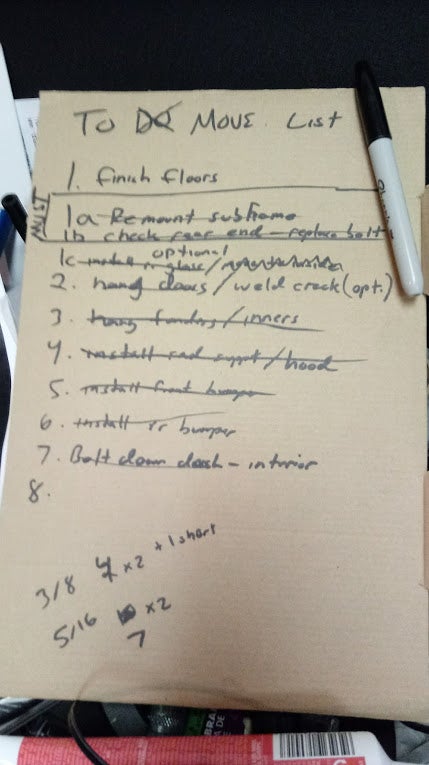 TO DO MOVE List
1. finish floors
MUST
1a Remount subframe
1b check rear end - replace bolt
optional
1c install r glass /
2. hang doors / weld crack (opt.)
3. hang fenders / inners
4. install rad support / hood
5. install front bumper
6. install rr bumper
7. Bolt down dash - interior
8.
3/8 4 x2 + 1 short
5/16 x2
7